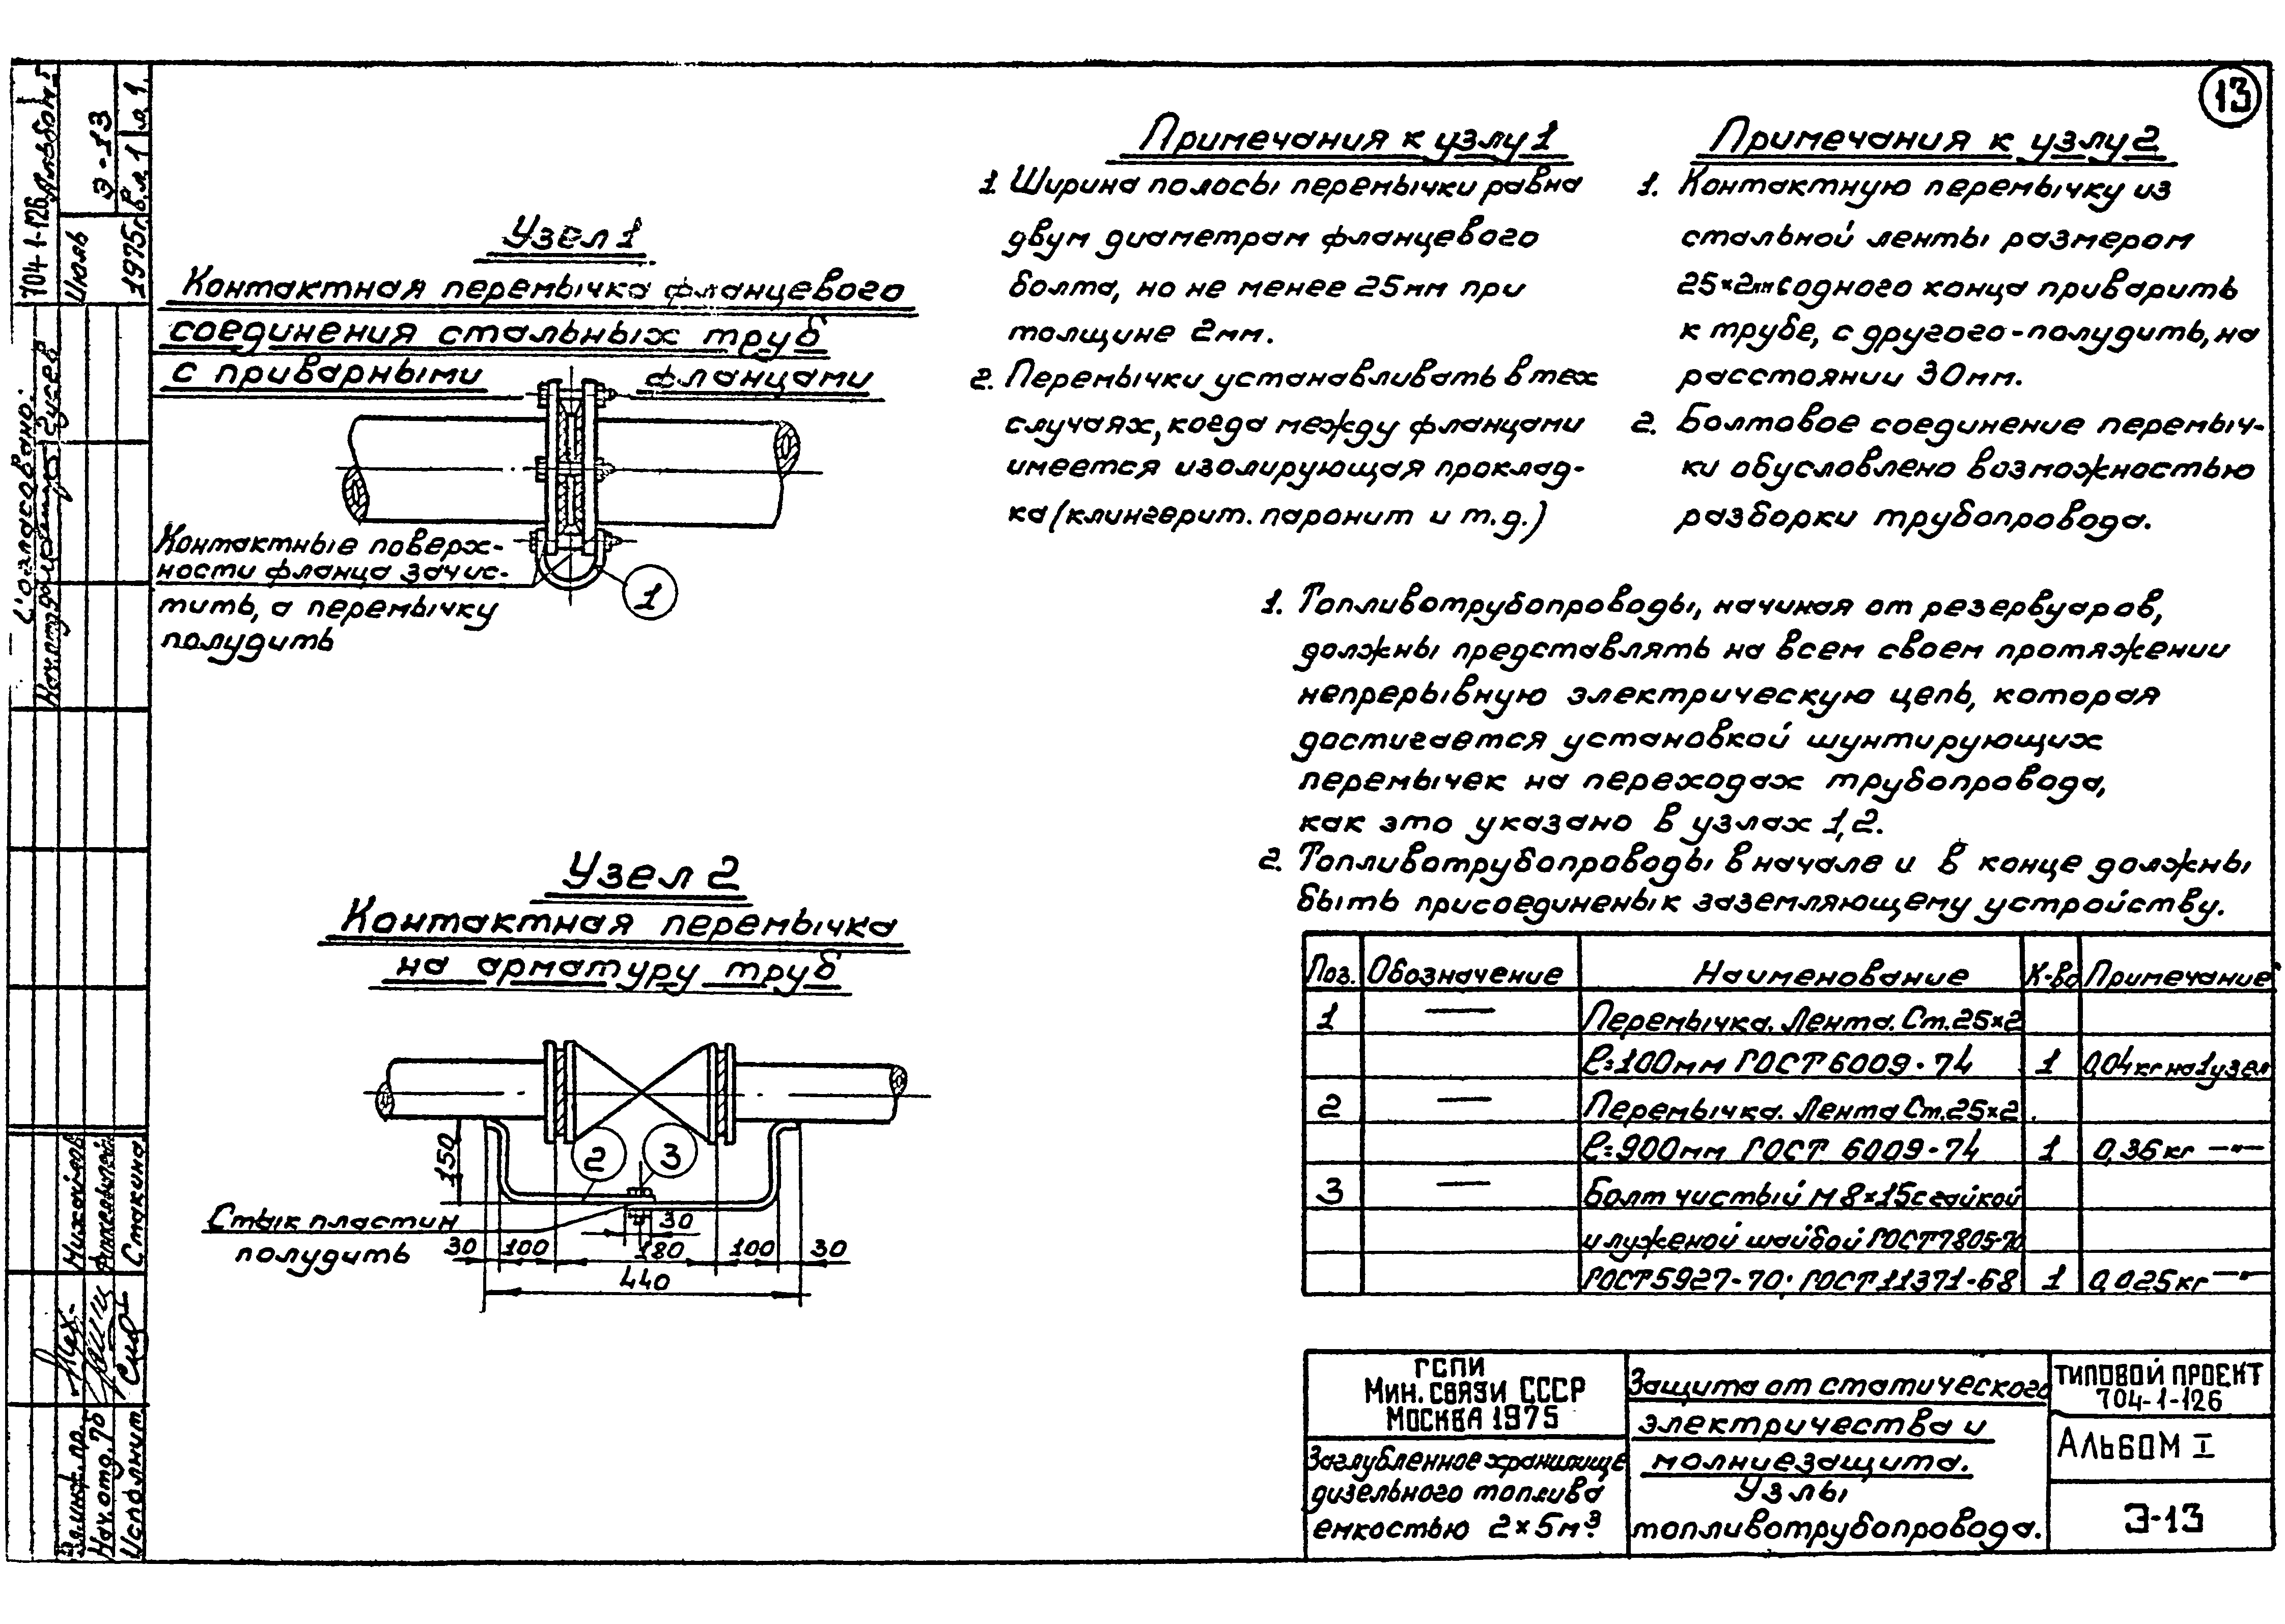 13
Узел 1
Контактная перемычка фланцевого
соединения стальных труб
с приварными фланцами
Контактные поверх-
ности фланца зачис-
тить, а перемычку
полудить
1
Примечания к узлу 1
1. Ширина полосы перемычки равна
двум диаметрам фланцевого
болта, но не менее 25мм при
толщине 2мм.
2. Перемычки устанавливать в тех
случаях, когда между фланцами
имеется изолирующая проклад-
ка (клингерит. паронит и т.д.)
Примечания к узлу 2
1. Контактную перемычку из
стальной ленты размером
25×2мм с одного конца приварить
к трубе, с другого - полудить, на
расстоянии 30мм.
2. Болтовое соединение перемыч-
ки обусловлено возможностью
разборки трубопровода.
1. Топливотрубопроводы, начиная от резервуаров,
должны представлять на всем своем протяжении
непрерывную электрическую цепь, которая
достигается установкой шунтирующих
перемычек на переходах трубопровода,
как это указано в узлах 1,2.
2. Топливотрубопроводы в начале и в конце должны
быть присоединены к заземляющему устройству.
Узел 2
Контактная перемычка
на арматуру труб
2
3
150
Стык пластин
полудить
30
30 100 180 100 30
440
Поз. Обозначение Наименование К-во Примечание
1 — Перемычка. Лента. Ст. 25×2
ℓ=100мм ГОСТ 6009-74 1 0,04кг на 1 узел
2 — Перемычка. Лента Ст. 25×2
ℓ=900мм ГОСТ 6009-74 1 0,36кг —"—
3 — Болт чистый М8×15 с гайкой
и луженой шайбой ГОСТ 7805-70
ГОСТ 5927-70; ГОСТ 11371-68 1 0,025кг —"—
ГСПИ
Мин. связи СССР
Москва 1975
Заглубленное хранилище
дизельного топлива
емкостью 2×5м³.
Защита от статического
электричества и
молниезащита.
Узлы
топливотрубопровода.
Типовой проект
704-1-126
Альбом I
Э-13
704-1-126 Альбом I
Э-13
Июль 1975г.
В.л.1 л.1
Согласовано:
Гусев
Михайлов
Стакина
Гл.инж.пр.
Нач.отд.70
Исполнит.